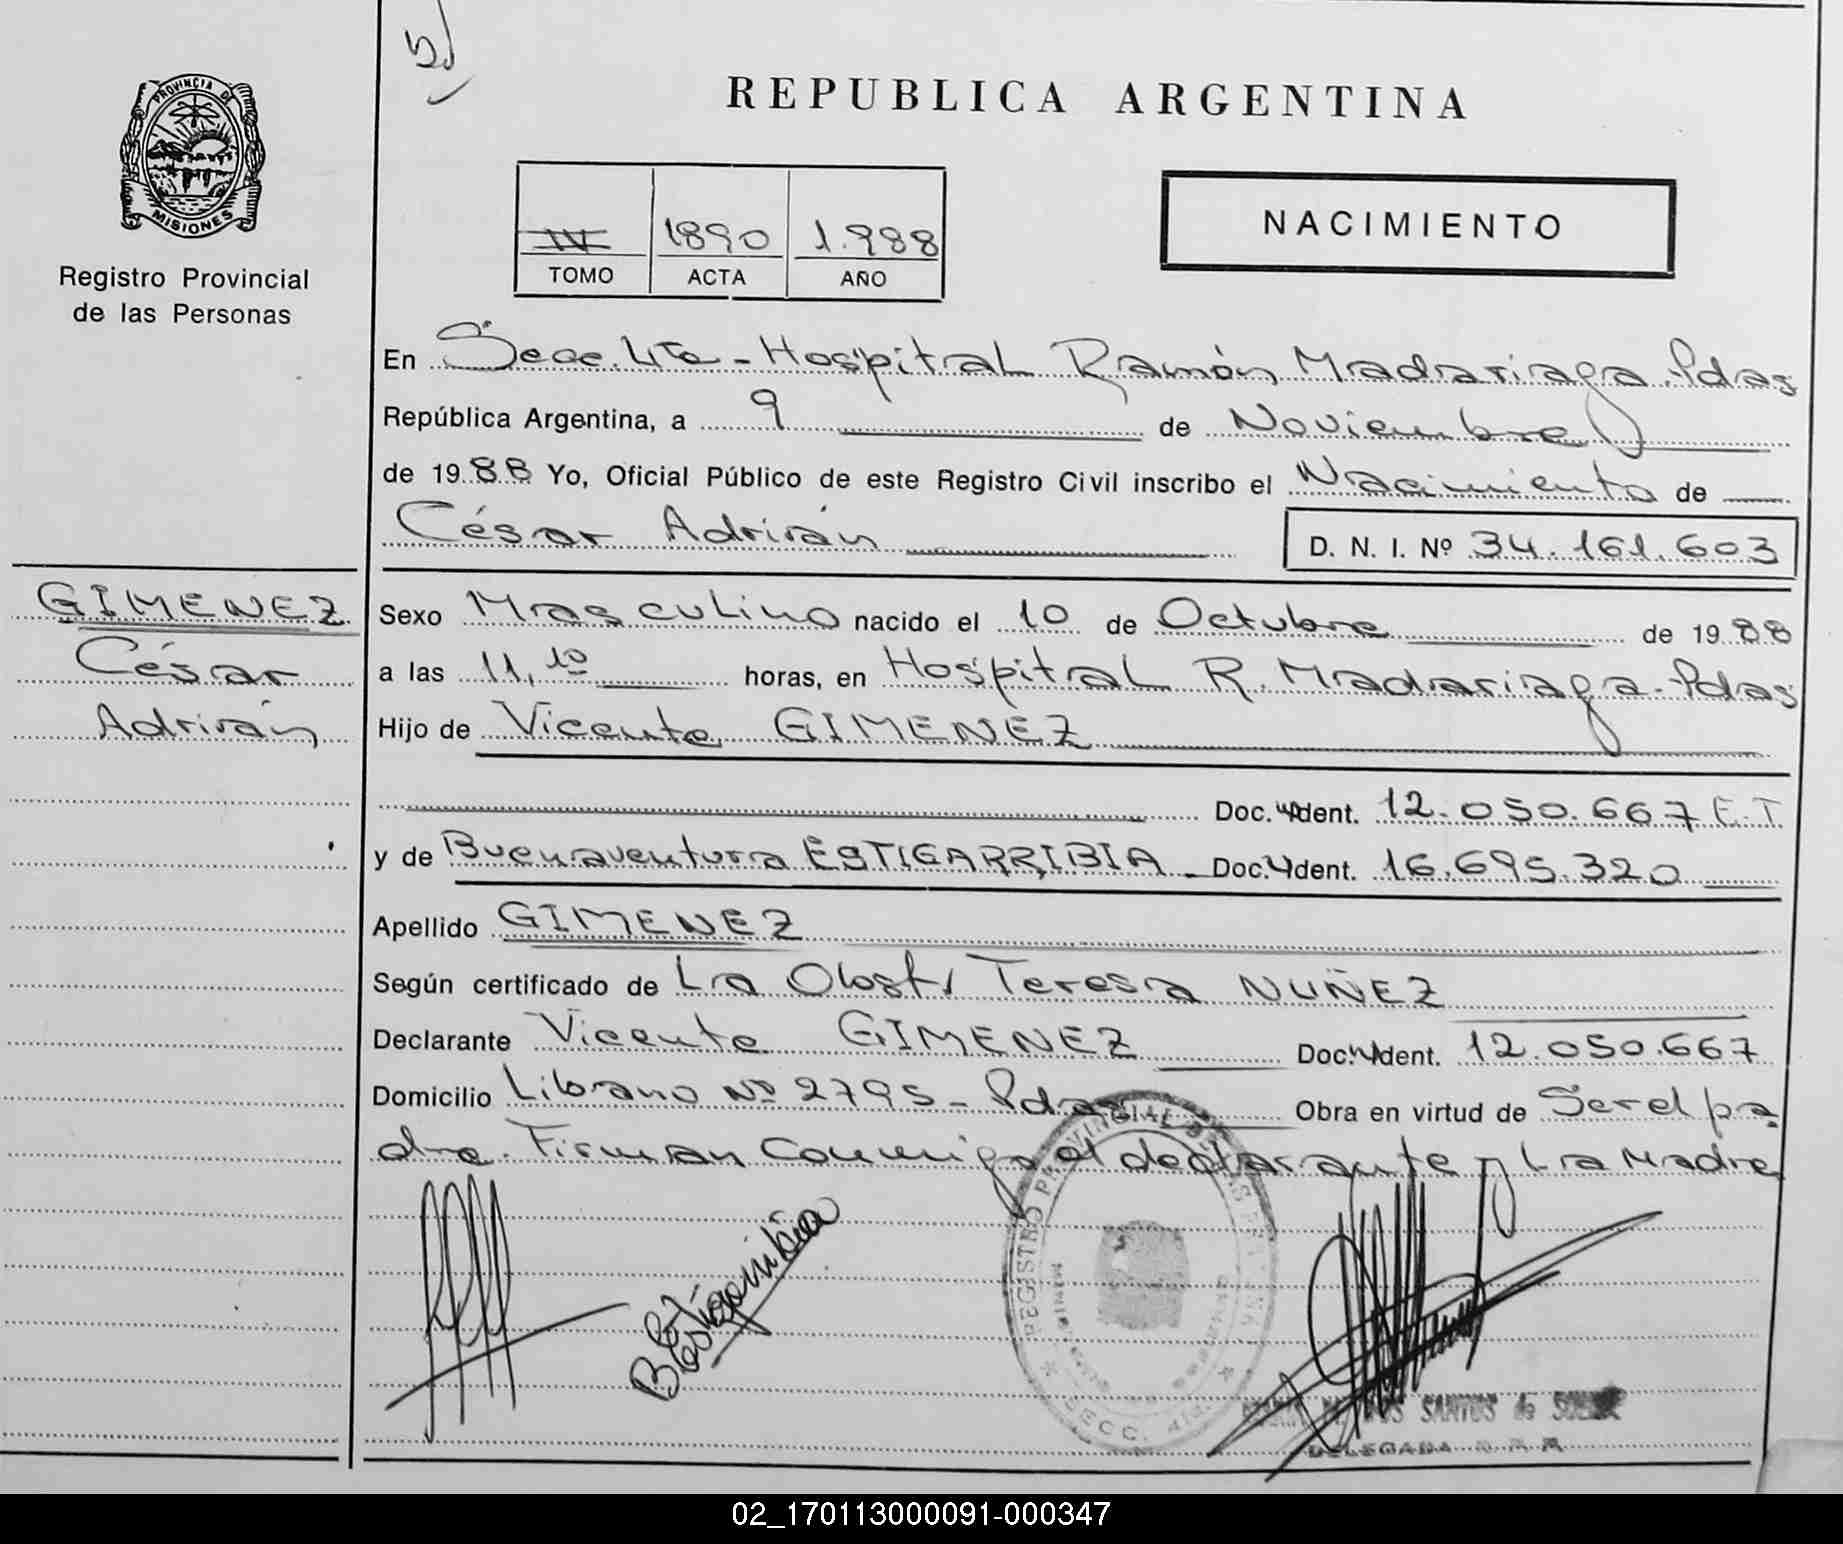 PROVINCIA DE
MISIONES
Registro Provincial
de las Personas
REPUBLICA ARGENTINA
IV 1890 1.988
TOMO ACTA AÑO
NACIMIENTO
En Secc. 4ta - Hospital Ramón Madariaga. Pdas
República Argentina, a 9 de Noviembre
de 1988 Yo, Oficial Público de este Registro Civil inscribo el Nacimiento de
César Adrián D. N. I. Nº 34.161.603
GIMENEZ
César
Adrián
Sexo Masculino nacido el 10 de Octubre de 1988
a las 11,10 horas, en Hospital R. Madariaga - Pdas
Hijo de Vicente GIMENEZ
Doc. Ident. 12.050.667 E.T.
y de Buenaventura ESTIGARRIBIA - Doc. Ident. 16.695.320
Apellido GIMENEZ
Según certificado de La Obst/ Teresa NUÑEZ
Declarante Vicente GIMENEZ Doc. Ident. 12.050.667
Domicilio Libano Nº 2795 - Pdas Obra en virtud de Ser el pa
dre. Firman conmigo el declarante y la Madre
B Estigarribia
REGISTRO PROVINCIAL DE LAS PERSONAS
SECC. 4ta.
DOS SANTOS de
DELEGADA
02_170113000091-000347